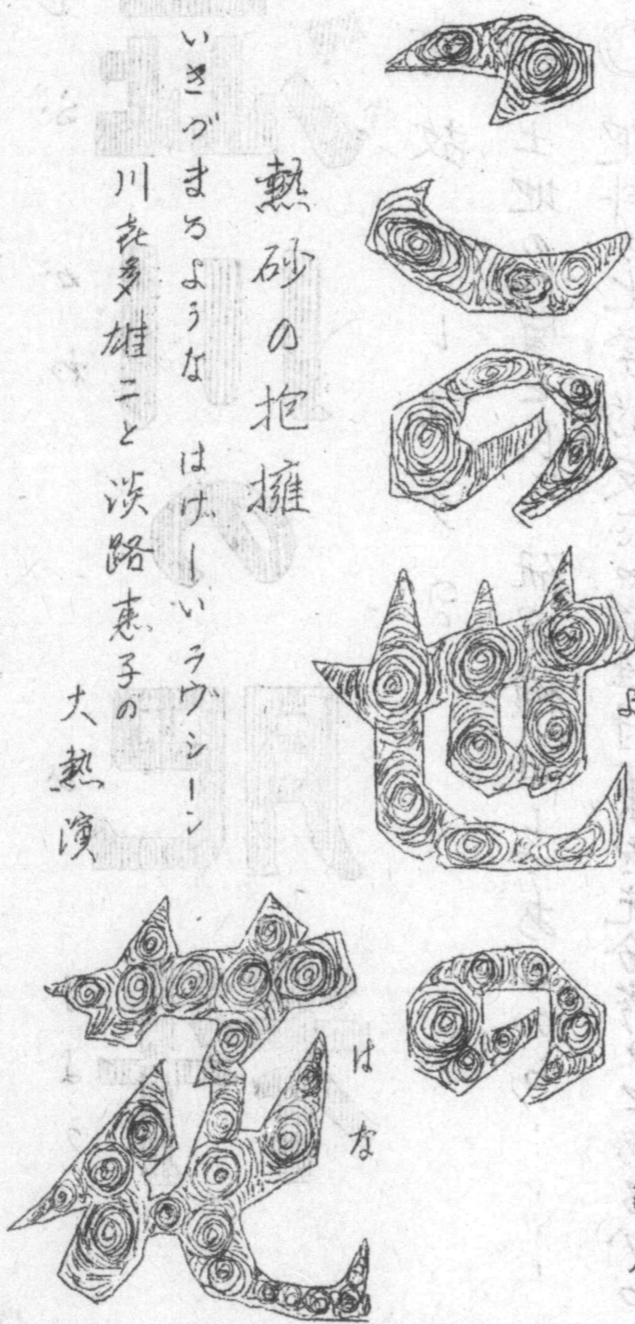 この世の花
よ
はな
熱砂の抱擁
いきづまるような はげしいラヴシーン
川喜多雄二と淡路恵子の
大熱演